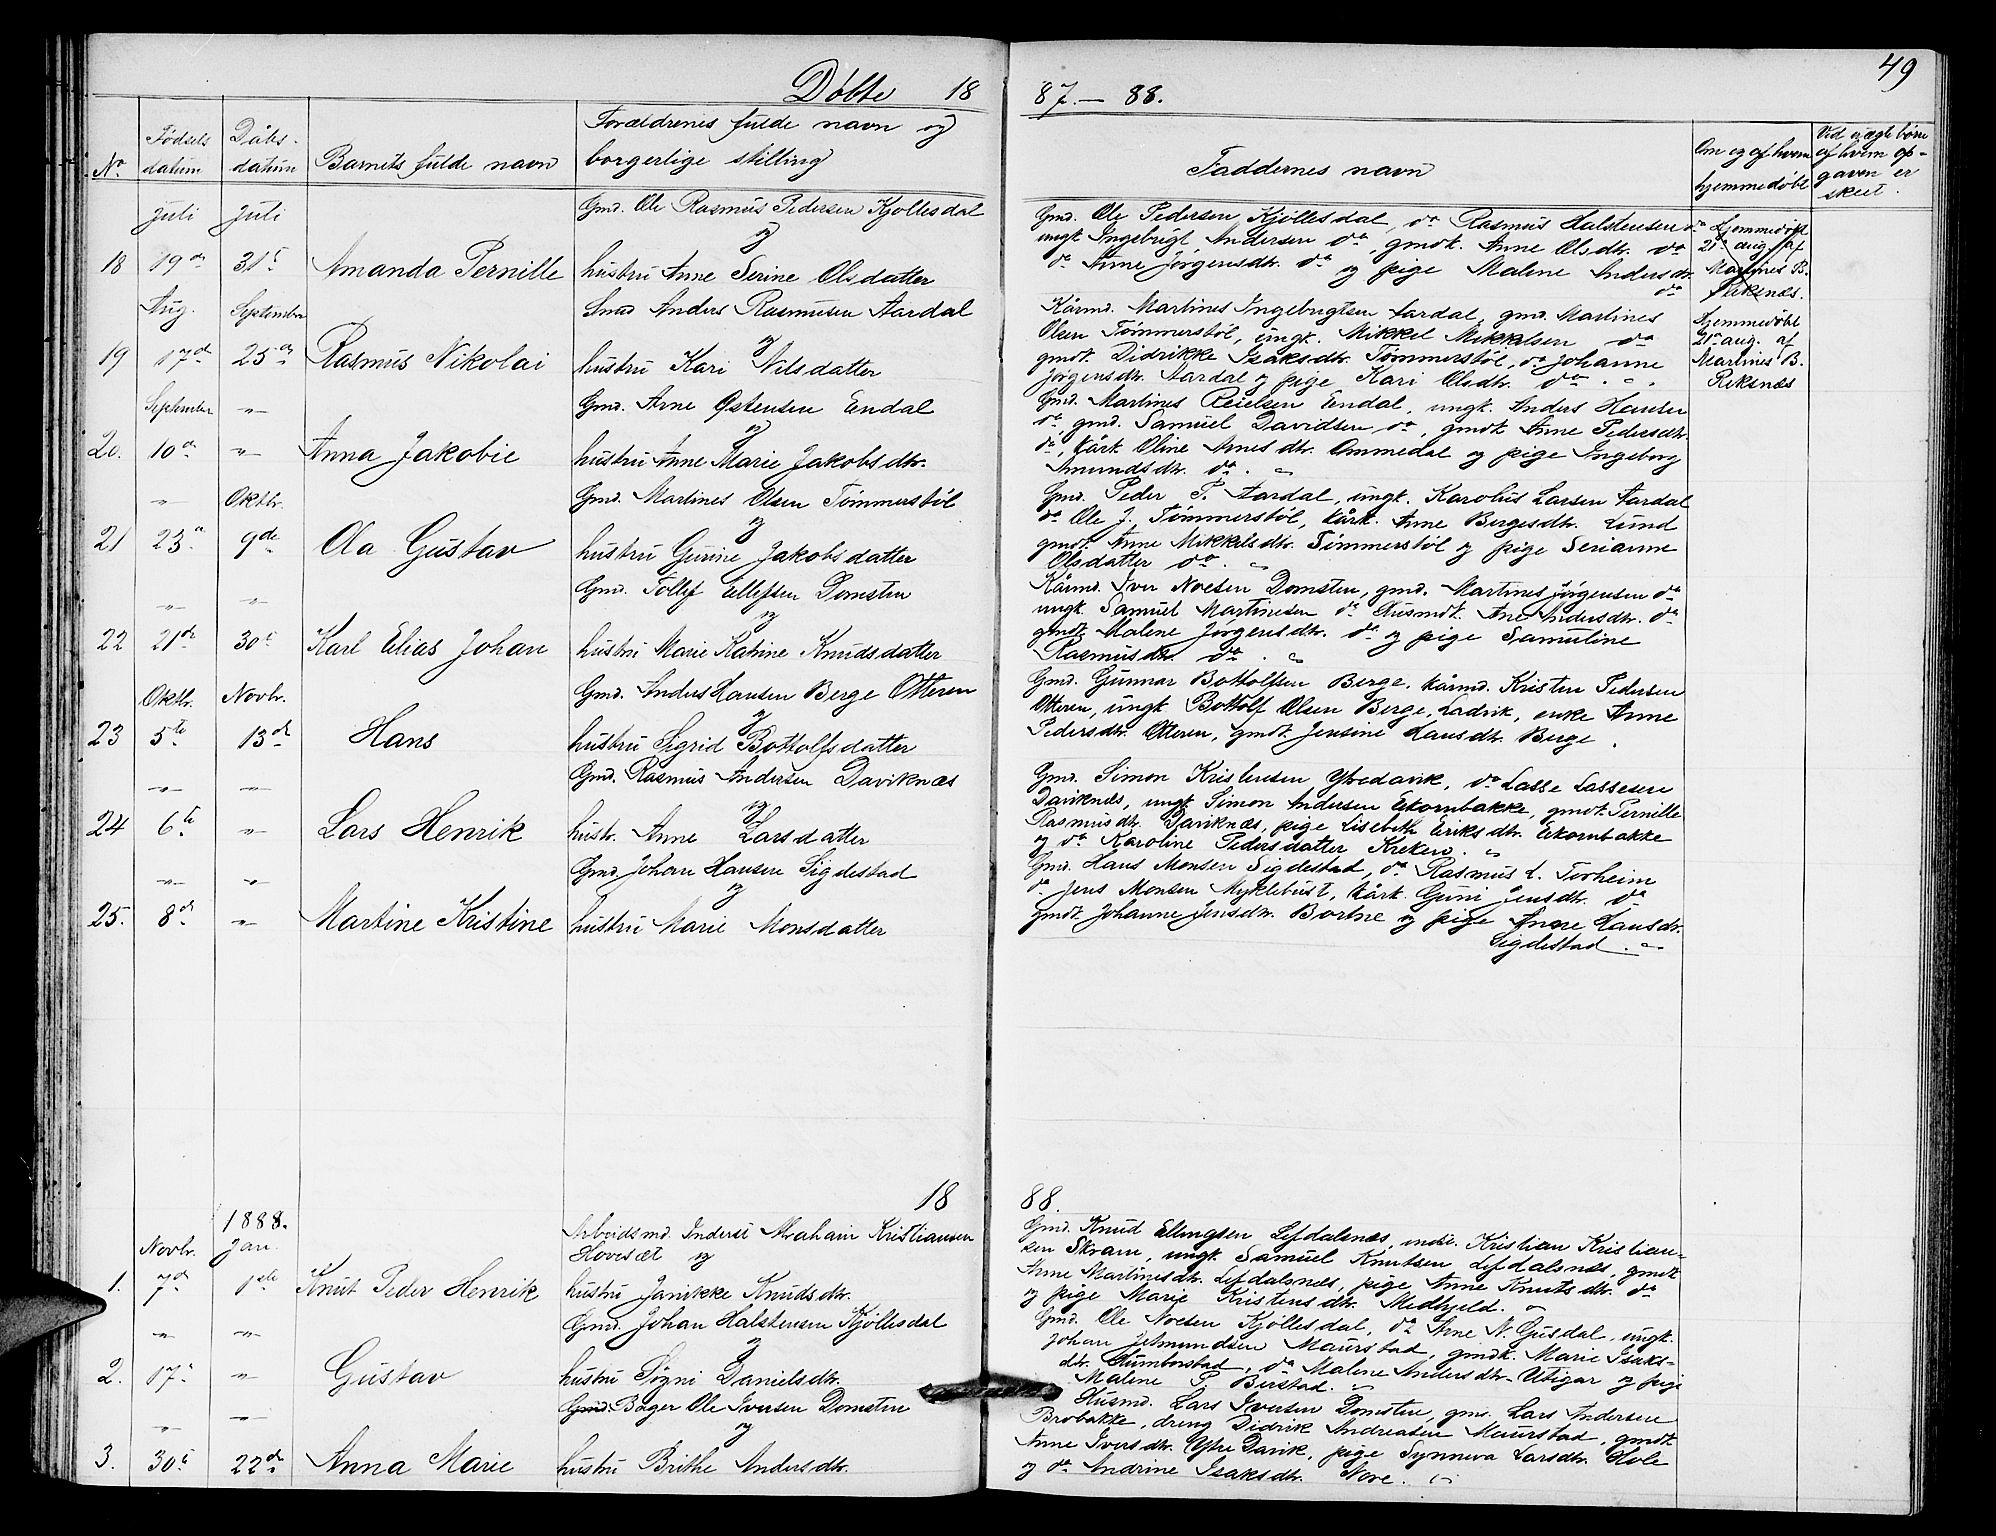 49
Døbte 18
87.– 88.
No
Fødsels datum
Dåbs- datum
Barnets fulde navn
Forældrenes fulde navn og borgerlige stilling
Faddernes navn
Om og af hvem hjemmedøbt
Vid uægte børn af hvem op- gaven er skeet.
Juli Juli
Gmd. Ole Rasmus Pedersen Kjøllesdal
og
18 19de 31te Amanda Pernille hustru Anne Serine Olsdatter
Gmd. Ole Pedersen Kjøllesdal, do Rasmus Halstensen do
ungk Ingebrigt Andersen do, gmdk. Anne Olsdtr. do
do Anne Jørgensdtr. do og pige Malene Andersdtr.
do
Hjemmedøbt
21de aug. af
Martines B.
Reksnæs.
Aug. September
Gmd Anders Rasmusen Aardal
og
19 17de 25de Rasmus Nikolai hustru Kari Nilsdatter
Kårmd. Martines Ingebrigtsen Aardal, gmd. Martines
Olsen Tømmerstøl, ungk. Mikkel Mikkelsen do
gmdk. Didrikke Isaksdtr. Tømmerstøl, do Johanne
Jørgensdtr. Aardal og pige Kari Olsdtr. do
Hjemmedøbt
21de aug. af
Martines B.
Reksnæs
September –"–
Gmd. Arne Østensen Endal
og
20. 10de –"– Anna Jakobie hustru Anne Marie Jakobsdtr.
Gmd. Martines Reielsen Endal, ungk. Anders Hansen
do, gmd. Samuel Davidsen do, gmdk Anne Pedersdtr.
do, kårk Oline Arnesdtr. Ommedal og pige Ingeborg
Amundsdtr. do.
–"– Oktbr.
Gmd. Martines Olsen Tømmerstøl
og
21 23de 9de Ola Gustav hustru Gurine Jakobsdatter
Gmd. Peder P. Aardal, ungk. Karolus Larsen Aardal
do Ole J. Tømmerstøl, kårk. Anne Bergesdtr. Lund
gmdk. Anne Mikkelsdtr. Tømmerstøl og pige Serianne
Olsdatter do.
–"– –"–
Gmd. Tollef Ellefsen Domsten
og
22 21de 30te Karl Elias Johan hustru Marie Katrine Knudsdatter
Kårmd. Iver Noesen Domsten, gmd. Martines Jørgensen do
ungk. Samuel Martinesen do Husmdk. Ane Andersdtr. do
gmdk Malene Jørgensdtr. do og pige Samuline
Rasmusdtr. do.
Oktbr. Novbr.
Gmd. Anders Hansen Berge Otteren
og
23 5te 13de Hans hustru Sigrid Bottolfsdatter
Gmd. Gunnar Bottolfsen Berge, kårmd. Kristen Pedersen
Otteren, ungk Bottolf Olsen Berge, Ladvik, enke Anne
Pedersdtr. Otteren, gmdk. Jensine Hansdtr. Berge.
–"– –"–
Gmd. Rasmus Andersen Daviknæs
og
24 6te –"– Lars Henrik hustr. Anne Larsdatter
Gmd. Simon Kristensen Ytredavik, do Lasse Lassesen
Daviknæs, ungk Simon Andersen Ekornbakke, gmdk. Pernille
Rasmusdtr. Daviknæs, pige Lisebeth Eriksdtr. Ekornbakke
og do Karoline Pedersdatter Kreken.
–"– –"–
Gmd. Johan Hansen Sigdestad
og
25. 8de –"– Martine Kristine hustru Marie Monsdatter
Gmd. Hans Monsen Sigdestad, do Rasmus L. Torheim
do Jens Monsen Myklebust, kårk. Guni Jensdtr. do
gmdk. Johanne Jensdtr. Bortne og pige Anne Hansdtr.
Sigdestad.
18 88.
1888.
Novbr. Jan.
Arbeidsmd. Inderst Abraham Kristiansen
Hovesæt og
1. 7de 1ste Knut Peder Henrik hustru Janikke Knudsdtr.
Gmd. Knud Ellingsen Lefdalsnæs, inde. Kristian Kristian-
sen Skram, ungk. Samuel Knutsen Lefdalsnæs, gmdk
Anne Martinesdtr. Lefdalsnæs, pige Anne Knutsdtr. do
og pige Marie Kristensdtr. Medhjeld.
–"– –"–
Gmd. Johan Halstensen Kjøllesdal
og
2. 17de –"– Gustav hustru Søgni Danielsdtr.
Gmd. Ole Noesen Kjøllesdal, do Arne N. Gusdal, ungk.
Johan Jetmundsen Maurstad, gmdk. Marie Isaks-
dtr. Rumborstad, do Malene Andersdtr. Utigar og pige
Malene P. Birstad.
–"– –"–
Gmd. Bager Ole Iversen Domsten
og
3. 30te 22de Anna Marie hustru Brithe Andersdtr.
Husmd. Lars Iversen Domsten, gmd. Lars Andersen
Brobakke, dreng Didrik Andreasen Maurstad, gmdk
Anne Iversdtr. Ytre Davik, pige Synneva Larsdtr. Hole
og do Andrine Isaksdtr. Nore.